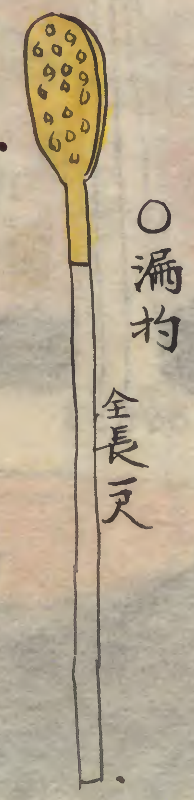 ○漏杓
全長一尺